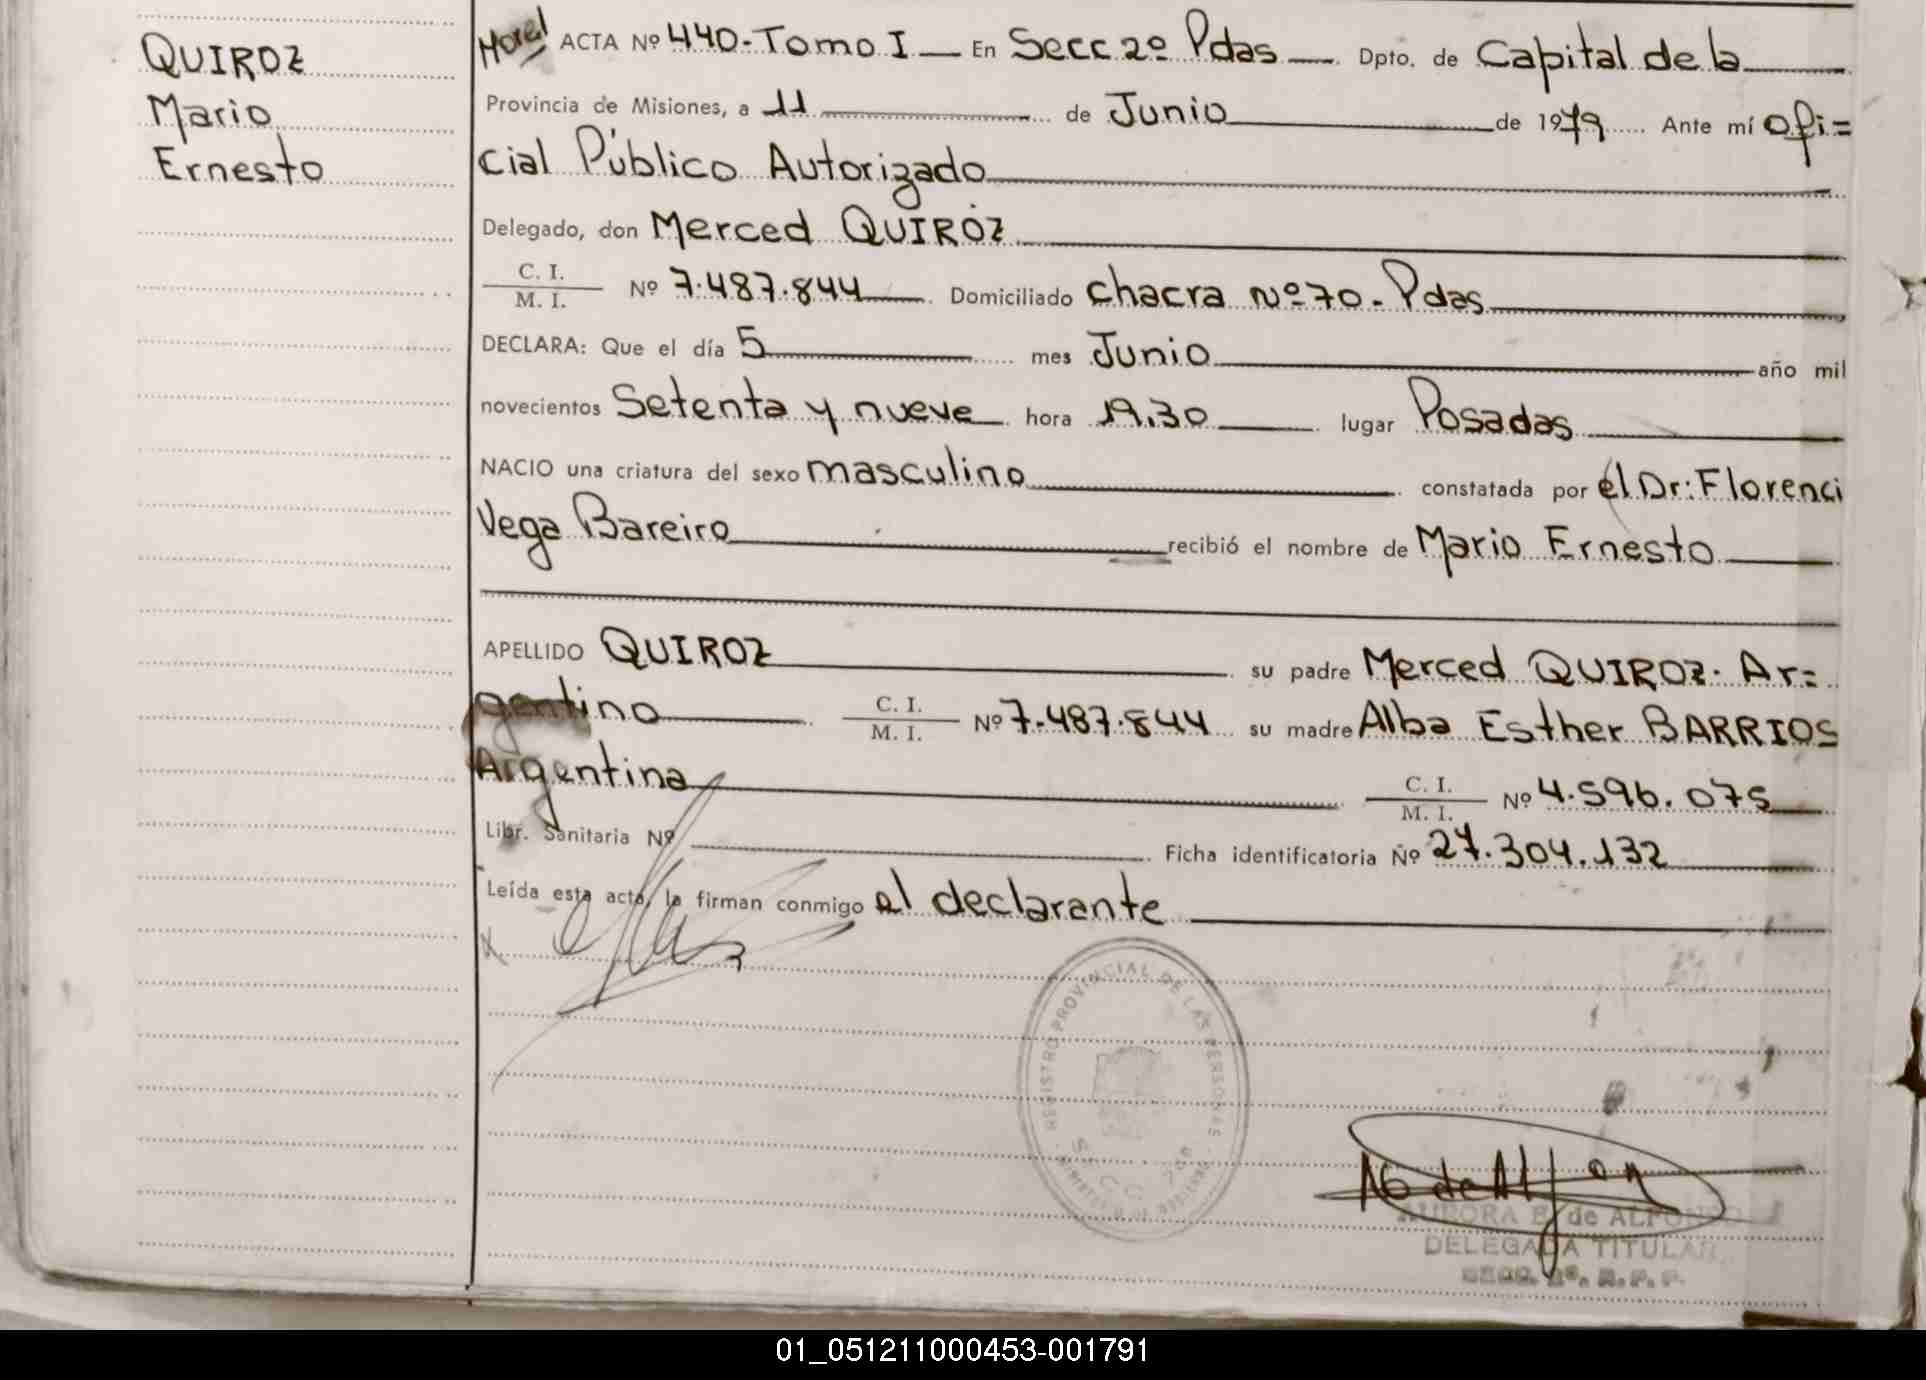 QUIROZ
Mario
Ernesto
ACTA Nº 440-Tomo I En Secc 2º Pdas Dpto. de Capital de la
Provincia de Misiones, a 11 de Junio de 1979 Ante mí ofi=
cial Público Autorizado
Delegado, don Merced QUIROZ
C. I.
M. I. Nº 7.487.844 Domiciliado chacra Nº 70 - Pdas
DECLARA: Que el día 5 mes Junio año mil
novecientos Setenta y nueve hora 19.30 lugar Posadas
NACIO una criatura del sexo masculino constatada por él Dr: Florenci
Vega Bareiro recibió el nombre de Mario Ernesto
APELLIDO QUIROZ su padre Merced QUIROZ. Ar=
gentino C. I. M. I. Nº 7.487.844 su madre Alba Esther BARRIOS
Argentina C. I. M. I. Nº 4.596.075
Libr. Sanitaria Nº Ficha identificatoria Nº 27.304.132
Leída esta acta, la firman conmigo el declarante
REGISTRO PROVINCIAL DE LAS PERSONAS
AURORA B. de ALFONSO
DELEGADA TITULAR
SECC. 2ª. R. P. P.
01_051211000453-001791